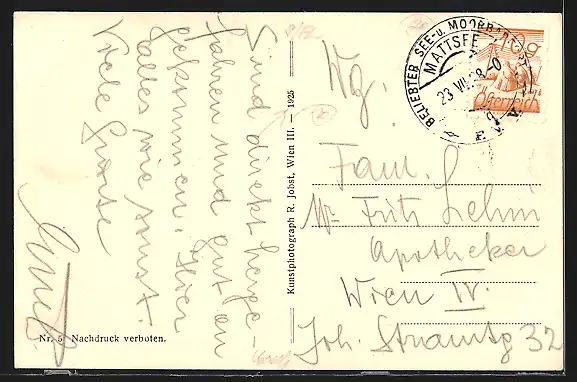 Sind direkt herge-
fahren und gut an
gekommen. Hier
alles wie sonst.
Viele Grüsse
Nr. 5 Nachdruck verboten.
Kunstphotograph R. Jobst, Wien III. — 1925
BELIEBTER SEE- u. MOORBADE
MATTSEE
23 VII 28
10 g
Österreich
Wg.
Fam.
Mr Fritz Lehm
Apotheker
Wien IV.
Joh. Straussg 32